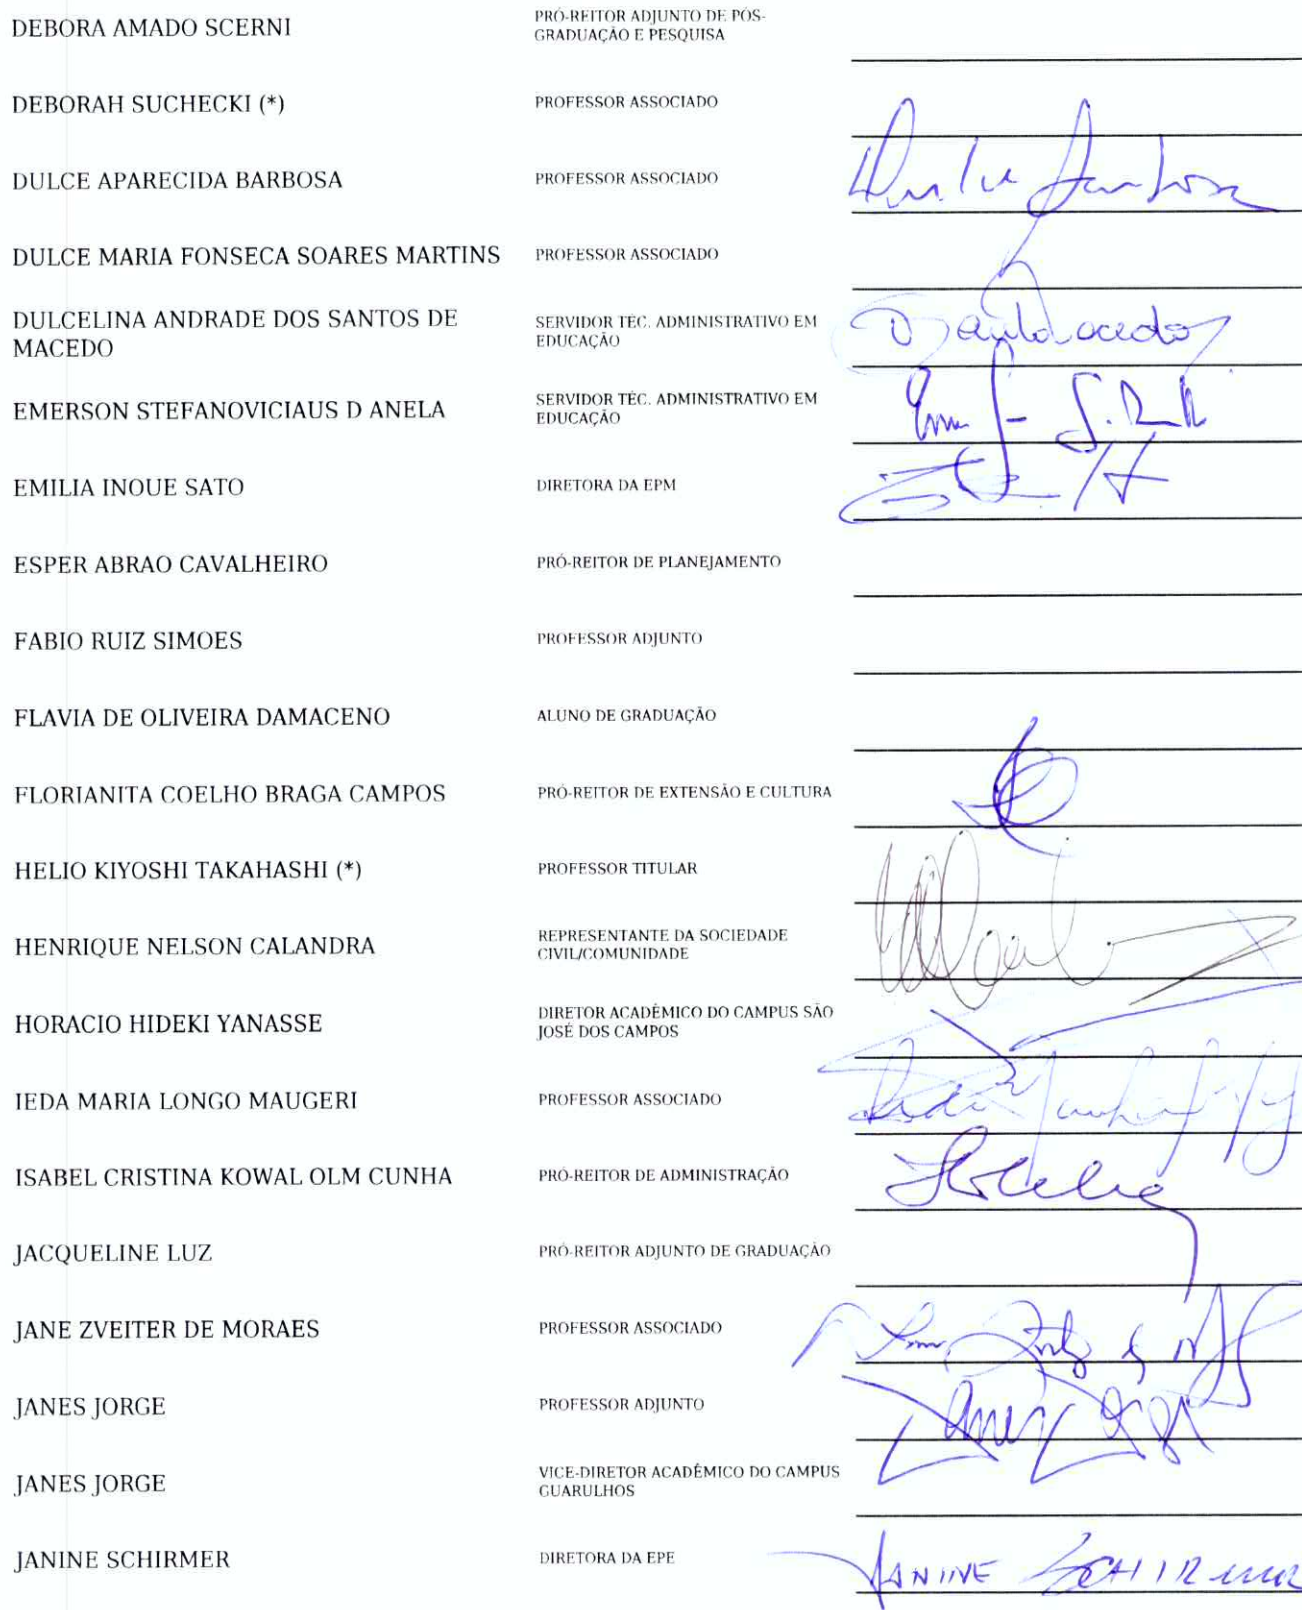 DEBORA AMADO SCERNI
PRÓ-REITOR ADJUNTO DE PÓS-
GRADUAÇÃO E PESQUISA
DEBORAH SUCHECKI (*)
PROFESSOR ASSOCIADO
DULCE APARECIDA BARBOSA
PROFESSOR ASSOCIADO
Dulce Barbosa
DULCE MARIA FONSECA SOARES MARTINS
PROFESSOR ASSOCIADO
DULCELINA ANDRADE DOS SANTOS DE
MACEDO
SERVIDOR TÉC. ADMINISTRATIVO EM
EDUCAÇÃO
EMERSON STEFANOVICIAUS D ANELA
SERVIDOR TÉC. ADMINISTRATIVO EM
EDUCAÇÃO
EMILIA INOUE SATO
DIRETORA DA EPM
ESPER ABRAO CAVALHEIRO
PRÓ-REITOR DE PLANEJAMENTO
FABIO RUIZ SIMOES
PROFESSOR ADJUNTO
FLAVIA DE OLIVEIRA DAMACENO
ALUNO DE GRADUAÇÃO
FLORIANITA COELHO BRAGA CAMPOS
PRÓ-REITOR DE EXTENSÃO E CULTURA
HELIO KIYOSHI TAKAHASHI (*)
PROFESSOR TITULAR
HENRIQUE NELSON CALANDRA
REPRESENTANTE DA SOCIEDADE
CIVIL/COMUNIDADE
HORACIO HIDEKI YANASSE
DIRETOR ACADÊMICO DO CAMPUS SÃO
JOSÉ DOS CAMPOS
IEDA MARIA LONGO MAUGERI
PROFESSOR ASSOCIADO
ISABEL CRISTINA KOWAL OLM CUNHA
PRÓ-REITOR DE ADMINISTRAÇÃO
JACQUELINE LUZ
PRÓ-REITOR ADJUNTO DE GRADUAÇÃO
JANE ZVEITER DE MORAES
PROFESSOR ASSOCIADO
JANES JORGE
PROFESSOR ADJUNTO
Janes Jorge
JANES JORGE
VICE-DIRETOR ACADÊMICO DO CAMPUS
GUARULHOS
JANINE SCHIRMER
DIRETORA DA EPE
JANINE SCHIRMER